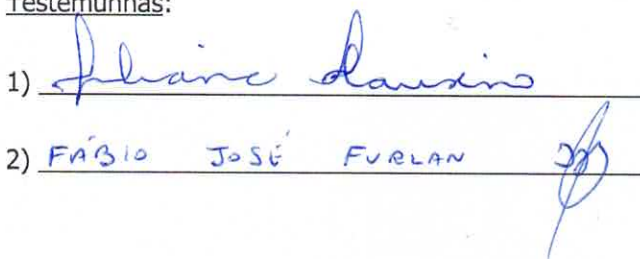 Testemunhas:
1) Juliana
2) FÁBIO JOSÉ FURLAN